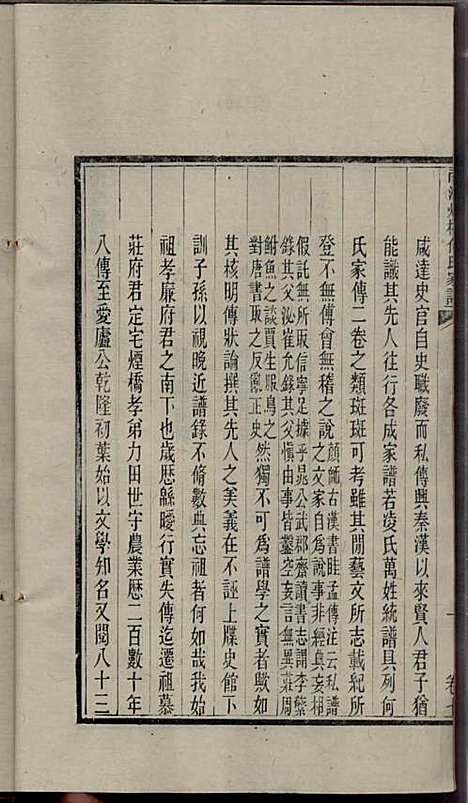 咸達史官自史職廢而私傳興秦漢以來賢人君子猶
能識其先人往行各成家譜若凌氏萬姓統譜具列何
氏家傳二卷之類斑斑可考雖其閒藝文所志載紀所
登不無傅會無稽之說顏師古漢書眭孟傳注云私譜
之文家自為說事非經典妄相
假託無所取信寧足據乎晁公武郡齋讀書志謂李繁
錄其父泌崔允錄其父慎由事皆鑿空妄言無異莊周
鮒魚之談賈生服鳥之
對唐書取之反亂正史然獨不可為譜學之實者歟如
其核明傳狀論撰其先人之美義在不誣上牒史館下
訓子孫以視晚近譜錄不脩數典忘祖者何如哉我始
祖孝廉府君之南下也歲歷緜曖行實失傳迄遷祖慕
莊府君定宅煙橋孝弟力田世守農業歷二百數十年
八傳至愛廬公乾隆初葉始以文學知名又閱八十三
卷七